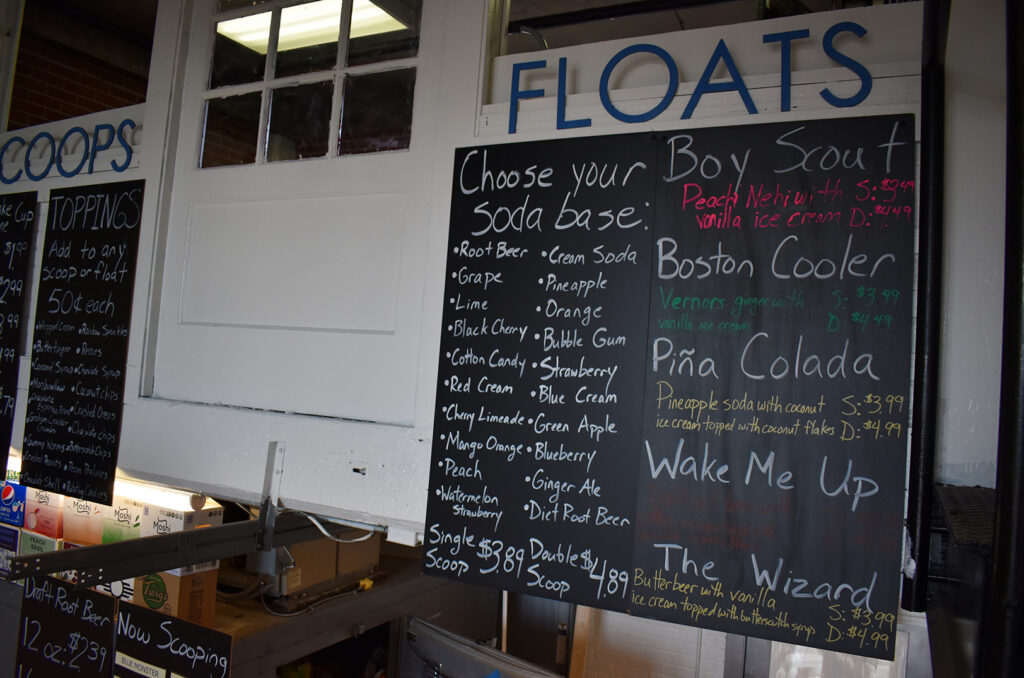 COOPS
TOPPINGS
Add to any
scoop or float
50¢ each
• Whipped Cream • Rainbow Sprinkles
• Butterfinger • Reeces
• Caramel Syrup • Chocolate Syrup
• Marshmallow • Coconut chips
• Crushed Oreos
• Chocolate chips
• Gummy Worms • Butterscotch Chips
• Crushed Peanuts • Pecan Pralines
• Chocolate Shell
FLOATS
Choose your
soda base:
• Root Beer • Cream Soda
• Grape • Pineapple
• Lime • Orange
• Black Cherry • Bubble Gum
• Cotton Candy • Strawberry
• Red Cream • Blue Cream
• Cherry Limeade • Green Apple
• Mango Orange • Blueberry
• Peach • Ginger Ale
• Watermelon
Strawberry • Diet Root Beer
Single
Scoop $3.89 Double
Scoop $4.89
Boy Scout
Peach Nehi with S: $3.49
vanilla ice cream D: $4.49
Boston Cooler
Vernors ginger with S: $3.49
vanilla ice cream D: $4.49
Piña Colada
Pineapple soda with coconut S: $3.99
ice cream topped with coconut flakes D: $4.99
Wake Me Up
The Wizard
Butterbeer with vanilla S: $3.99
ice cream topped with butterscotch syrup D: $4.99
pepsi
Moshi
Moshi
Moshi
Moshi
Twig's
Draft Root Beer
12 oz: $2.39
Now Scooping
BLUE MONSTER